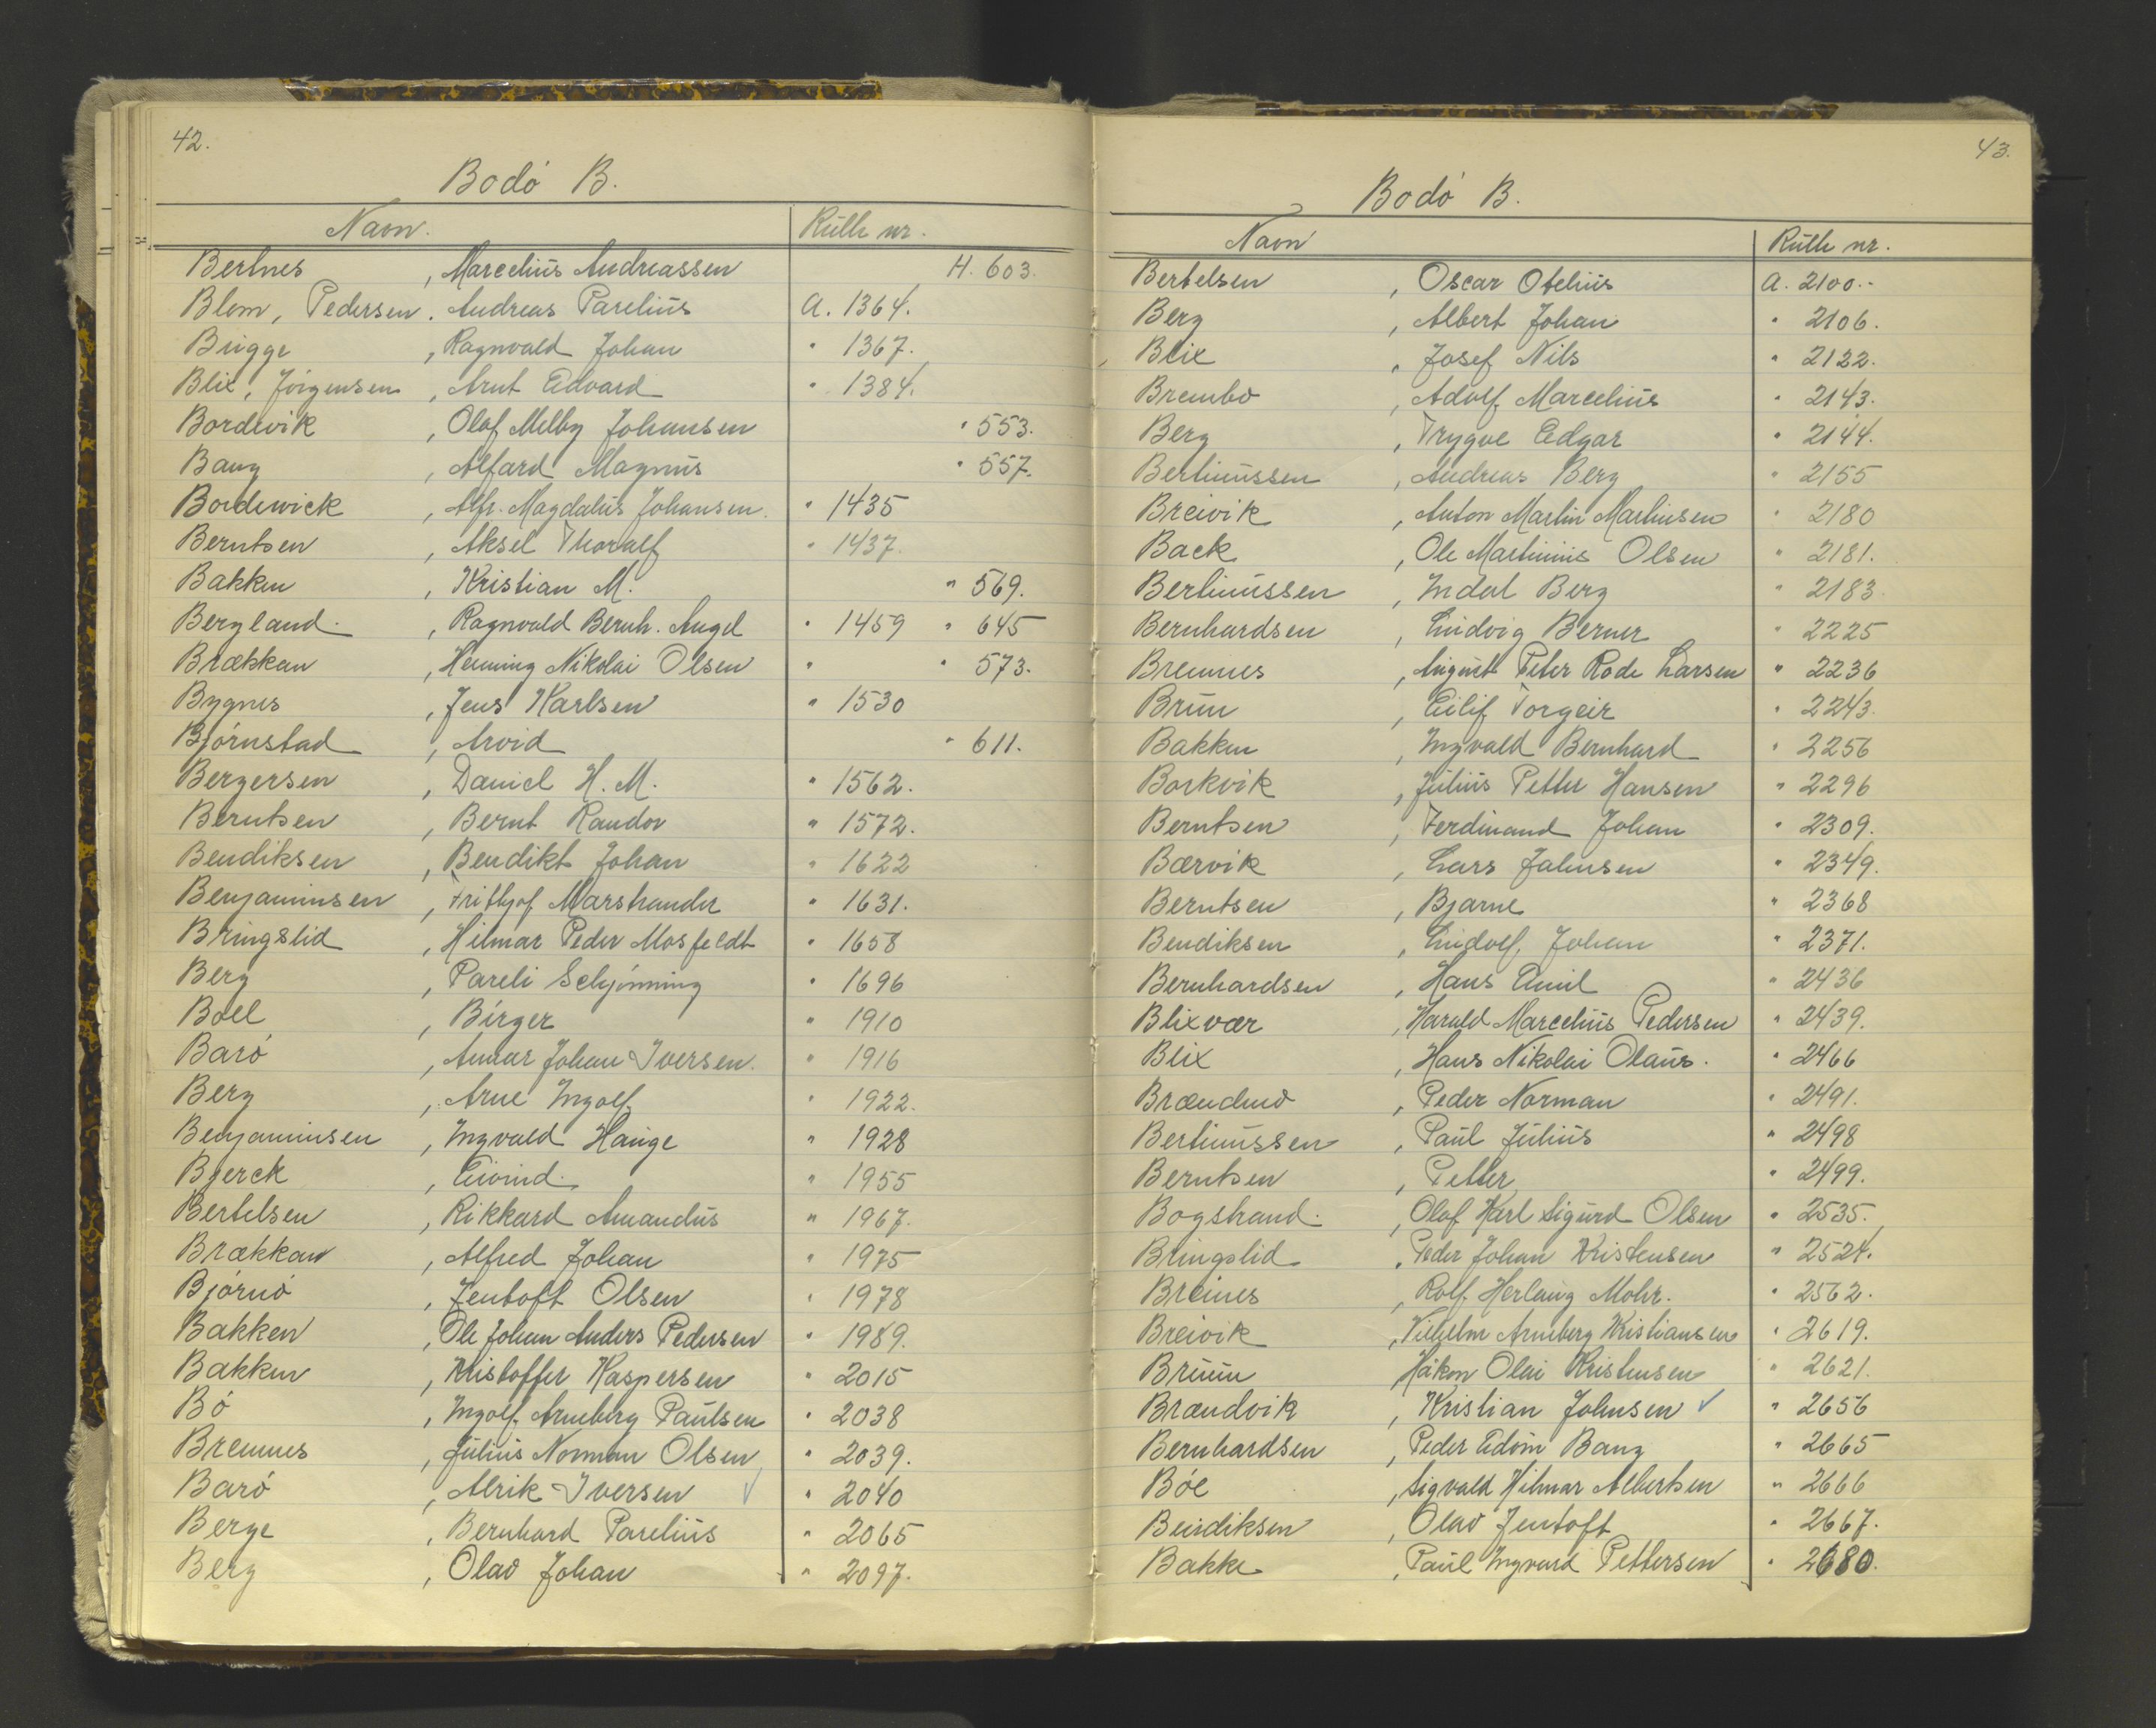 42.
Bodó B.
Navn. Rulle nr.
Bertnes , Marcelius Andreassen H. 603.
Blom, Pedersen . Andreas Parelius A. 1364.
Brigge , Ragnvald Johan " 1367.
Blix, Jörgensen , Arnt Edvard " 1384.
Bordevik , Olaf Melby Johansen " 553.
Bang , Alfard Magnus " 557.
Bordewick , Alfr. Magdalus Johansen. " 1435
Berntsen , Aksel Thoralf " 1437.
Bakken , Kristian M. " 569.
Bergland. , Ragnvald Bernh. Angel " 1459 " 645
Brækkan , Henning Nikolai Olsen " " 573.
Bygnes , Jens Karlsen " 1530
Bjórnstad , Arvid " 611.
Bergersen , Daniel H. M. " 1562.
Berntsen , Bernt Randor " 1572.
Bendiksen , Bendikt Johan " 1622
Benjaminsen , Frithjof Marstrander " 1631.
Bringslid , Hilmar Peder Mosfeldt " 1658
Berg , Pareli Schjönning " 1696
Boel , Birger " 1910
Baró , Annar Johan Iversen. " 1916
Berg , Arne Ingolf " 1922.
Benjaminsen , Ingvald Hauge " 1928
Bjerck , Eivind. " 1955
Bertelsen , Rikkard Amandus " 1967.
Brækkan , Alfred Johan " 1975
Bjórnó , Jentoft Olsen " 1978
Bakken , Ole Johan Anders Pedersen " 1989.
Bakken , Kristoffer Kaspersen " 2015
Bó , Ingolf Arneberg Paulsen " 2038
Bremnes , Julius Norman Olsen " 2039.
Baró , Alrik Iversen ✓ " 2040
Berge , Bernhard Parelius " 2065
Berg , Olav Johan " 2097.
43.
Bodó B.
Navn Rulle nr.
Bertelsen , Oscar Otelius A. 2100.-
Berg , Albert Johan " 2106.
Blix , Josef Nils " 2122.
Brembo , Adolf Marcelius " 2143.
Berg , Trygve Edgar " 2144.
Bertinussen , Andreas Berg " 2155
Breivik , Anton Martin Martinsen " 2180
Back , Ole Martinius Olsen " 2181.
Bertinussen , Indal Berg " 2183.
Bernhardsen , Ludvig Berner " 2225
Bremnes , August Peter Rode Larsen " 2236
Brun , Eilif Torgeir " 2243.
Bakken , Ingvald Bernhard " 2256
Borkvik , Julius Petter Hansen " 2296
Berntsen , Ferdinand Johan " 2309.
Bærvik , Lars Jahnsen " 2349.
Berntsen , Bjarne " 2368
Bendiksen , Ludolf Johan " 2371.
Bernhardsen , Hans Emil " 2436
Blixvær , Harald Marcelius Pedersen " 2439.
Blix , Hans Nikolai Olaus. " 2466
Brændmo , Peder Norman " 2491.
Bertinussen , Paul Julius " 2498
Berntsen , Petter " 2499.
Bogstrand. , Olaf Karl Sigurd Olsen " 2535.
Bringslid , Peder Johan Kristensen " 2524.
Breines , Rolf Herlaug Mohr. " 2562.
Breivik , Vilhelm Arneberg Kristiansen " 2619.
Bruun Håkon Olai Kristensen " 2621.
Brændvik , Kristian Johnsen ✓ " 2656
Bernhardsen , Peder Edvin Bang " 2665
Bóe , Sigvald Hilmar Albertsen " 2666
Bendiksen , Olav Jentoft " 2667.
Bakke , Paul Ingvard Pettersen " 2680.